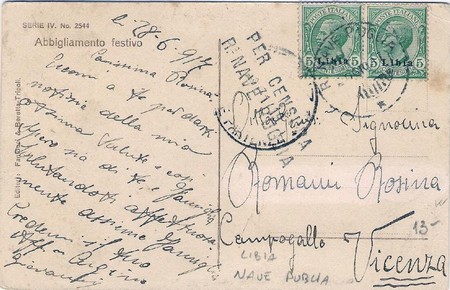 SERIE IV. No. 2544
Abbigliamento festivo
li 28-6-917
Carissima Rosina
Vengo a te per darti
notizie della mia
ottima salute e così
spero sia di te e famiglia
Salutandoti affettuosa
mente assieme famiglia
Credemi il tuo
Aff. Cugino
Giovanni
POSTE ITALIANE
POSTE ITALIANE
5 Libia 5
5 Libia 5
R. NAVE
Signorina
Romani Rosina
Campogallo
Vicenza
13-
LIBIA
NAVE PUGLIA